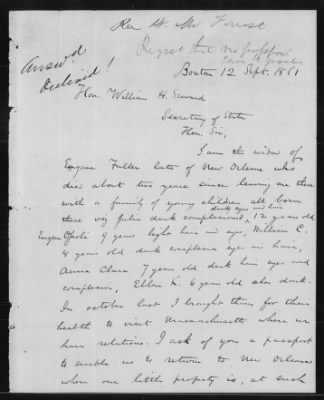 Rev. H. W. Forrest
Regret that no passport
can be granted
Answ'd
Declined!
Boston 12 Sept. 1861
Hon. William H. Seward
Secretary of State
Hon. Sir,
I am the widow of
Eugene Fuller late of New Orleans who
died about two years since leaving me there
with a family of young children all born
dark eyes and hair
there viz Julia dark complexioned, 12 years old
Eugene 9 years light hair and eyes, William C.
8 years old dark complexion eyes and hair,
Anna Clara 7 years old dark hair eyes and
complexion, Ellen K. 6 years old also dark.
In october last I brought them for their
health to visit Massachusetts where we
have relations. I ask of you a passport
to enable us to return to New Orleans
where our little property is, at such